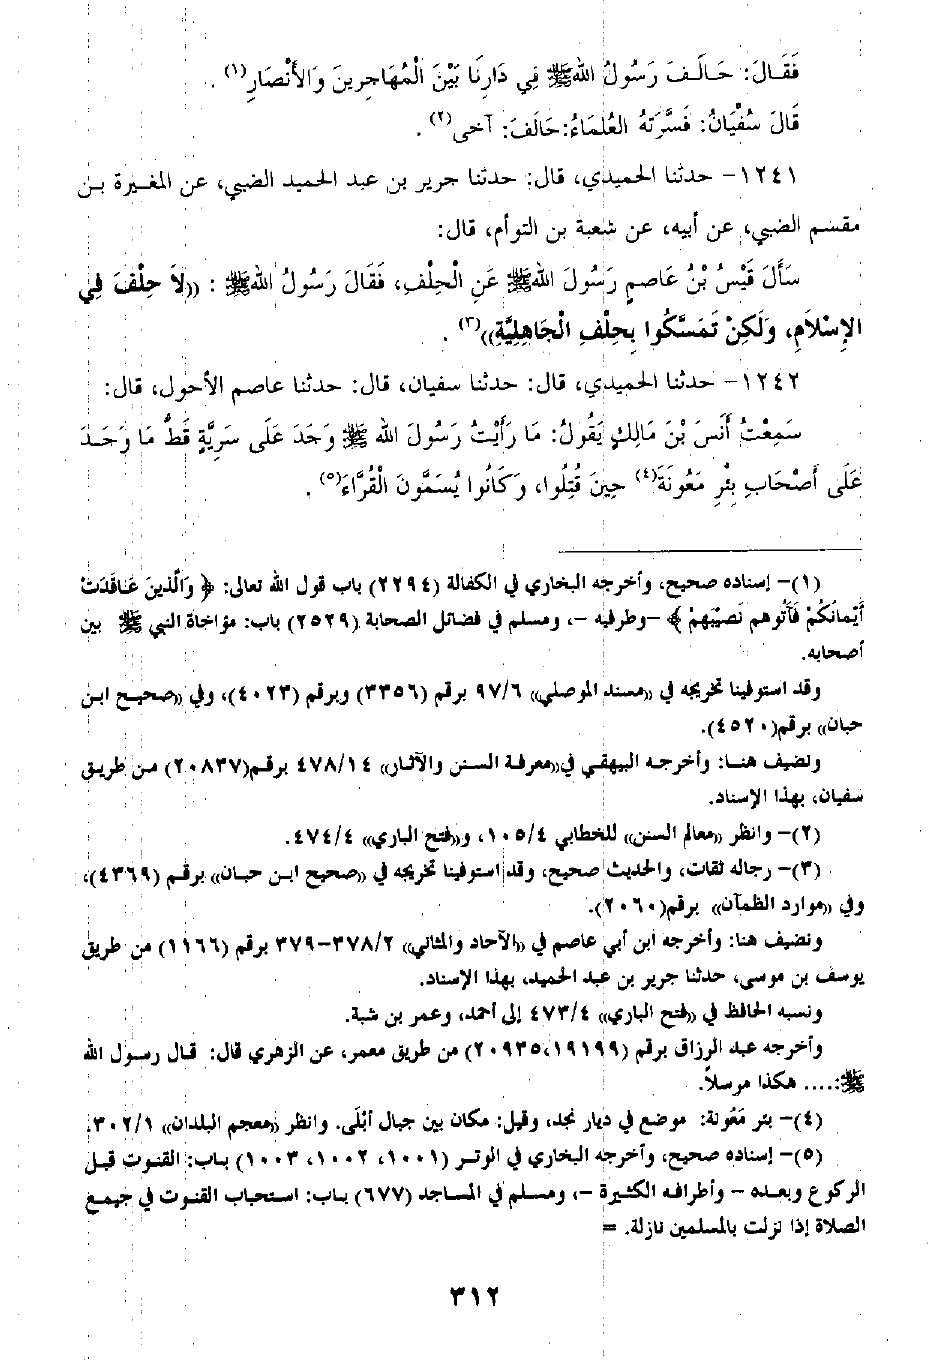 فَقَالَ: حَالَفَ رَسُولُ اللهِ ﷺ فِي دَارِنَا بَيْنَ الْمُهَاجِرِينَ وَالأَنْصَارِ(١).
قَالَ سُفْيَانُ: فَسَّرَتْهُ الْعُلَمَاءُ: حَالَفَ: آخَى(٢).
١٢٤١- حدثنا الحميدي، قال: حدثنا جرير بن عبد الحميد الضبي، عن المغيرة بن
مقسم الضبي، عن أبيه، عن شعبة بن التوأم، قال:
سَأَلَ قَيْسُ بْنُ عَاصِمٍ رَسُولَ اللهِ ﷺ عَنِ الْحِلْفِ، فَقَالَ رَسُولُ اللهِ ﷺ: ((لاَ حِلْفَ فِي
الإِسْلاَمِ، وَلَكِنْ تَمَسَّكُوا بِحِلْفِ الْجَاهِلِيَّةِ))(٣).
١٢٤٢- حدثنا الحميدي، قال: حدثنا سفيان، قال: حدثنا عاصم الأحول، قال:
سَمِعْتُ أَنَسَ بْنَ مَالِكٍ يَقُولُ: مَا رَأَيْتُ رَسُولَ اللهِ ﷺ وَجَدَ عَلَى سَرِيَّةٍ قَطُّ مَا وَجَدَ
عَلَى أَصْحَابِ بِئْرِ مَعُونَةَ(٤) حِينَ قُتِلُوا، وَكَانُوا يُسَمَّوْنَ الْقُرَّاءَ(٥).
(١)- إسناده صحيح، وأخرجه البخاري في الكفالة (٢٢٩٤) باب قول الله تعالى: ﴿وَالَّذِينَ عَاقَدَتْ
أَيْمَانُكُمْ فَآتُوهُم نَصِيْبَهِمْ﴾ -وطرفيه-، ومسلم في فضائل الصحابة (٢٥٢٩) باب: مؤاخاة النبي ﷺ بين
أصحابه.
وقد استوفينا تخريجه في ((مسند الموصلي)) ٩٧/٦ برقم (٣٣٥٦) وبرقم (٤٠٢٣)، وفي ((صحيح ابن
حبان)) برقم(٤٥٢٠).
ونضيف هنا: وأخرجه البيهقي في((معرفة السنن والآثار)) ٤٧٨/١٤ برقم(٢٠٨٣٧) من طريق
سفيان، بهذا الإسناد.
(٢)- وانظر ((معالم السنن)) للخطابي ١٠٥/٤، و((فتح الباري)) ٤٧٤/٤.
(٣)- رجاله ثقات، والحديث صحيح، وقد استوفينا تخريجه في ((صحيح ابن حبان)) برقم (٤٣٦٩)،
وفي ((موارد الظمآن)) برقم(٢٠٦٠).
ونضيف هنا: وأخرجه ابن أبي عاصم في ((الآحاد والمثاني)) ٣٧٨/٢-٣٧٩ برقم (١١٦٦) من طريق
يوسف بن موسى، حدثنا جرير بن عبد الحميد، بهذا الإسناد.
ونسبه الحافظ في ((فتح الباري)) ٤٧٣/٤ إلى أحمد، وعمر بن شبة.
وأخرجه عبد الرزاق برقم (١٩١٩٩،٢٠٩٣٥) من طريق معمر، عن الزهري قال: قال رسول الله
ﷺ:.... هكذا مرسلاً.
(٤)- بئر مَعُونة: موضع في ديار نجد، وقيل: مكان بين جبال أُبْلَى. وانظر ((معجم البلدان)) ٣٠٢/١.
(٥)- إسناده صحيح، وأخرجه البخاري في الوتر (١٠٠١، ١٠٠٢، ١٠٠٣) باب: القنوت قبل
الركوع وبعده - وأطرافه الكثيرة -، ومسلم في المساجد (٦٧٧) باب: استحباب القنوت في جميع
الصلاة إذا نزلت بالمسلمين نازلة. =
٣١٢